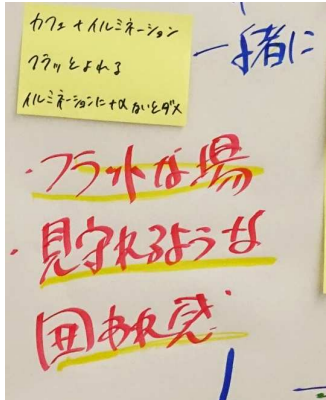 カフェ+イルミネーション
フラッとよれる
イルミネーションに+αないとダメ
一緒に
・フラットな場
・見守れるような
囲われ感